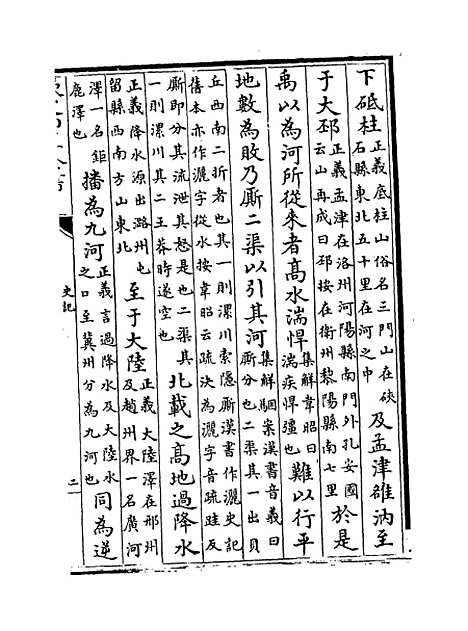 下砥柱正義底柱山俗名三門山在硤石縣東北五十里在河之中及孟津雒汭至
于大邳正義孟津在洛州河陽縣南門外孔安國云山再成曰邳按在衛州黎陽縣南七里於是
禹以為河所從來者高水湍悍集解韋昭曰湍疾悍彊也難以行平
地數為敗乃廝二渠以引其河集解駰案漢書音義曰廝分也二渠其一出貝
丘西南二折者也其一則漯川索隱廝漢書作灑史記舊本亦作灑字從水按韋昭云疏決為灑字音疏跬反
廝即分其流泄其怒是也二渠其一則漯川其二王莽時遂空也北載之高地過降水
正義降水源出潞州屯留縣西南方山東北至于大陸正義大陸澤在邢州及趙州界一名廣河
澤一名鉅鹿澤也播為九河正義言過降水及大陸水之口至冀州分為九河也同為逆
史記
二